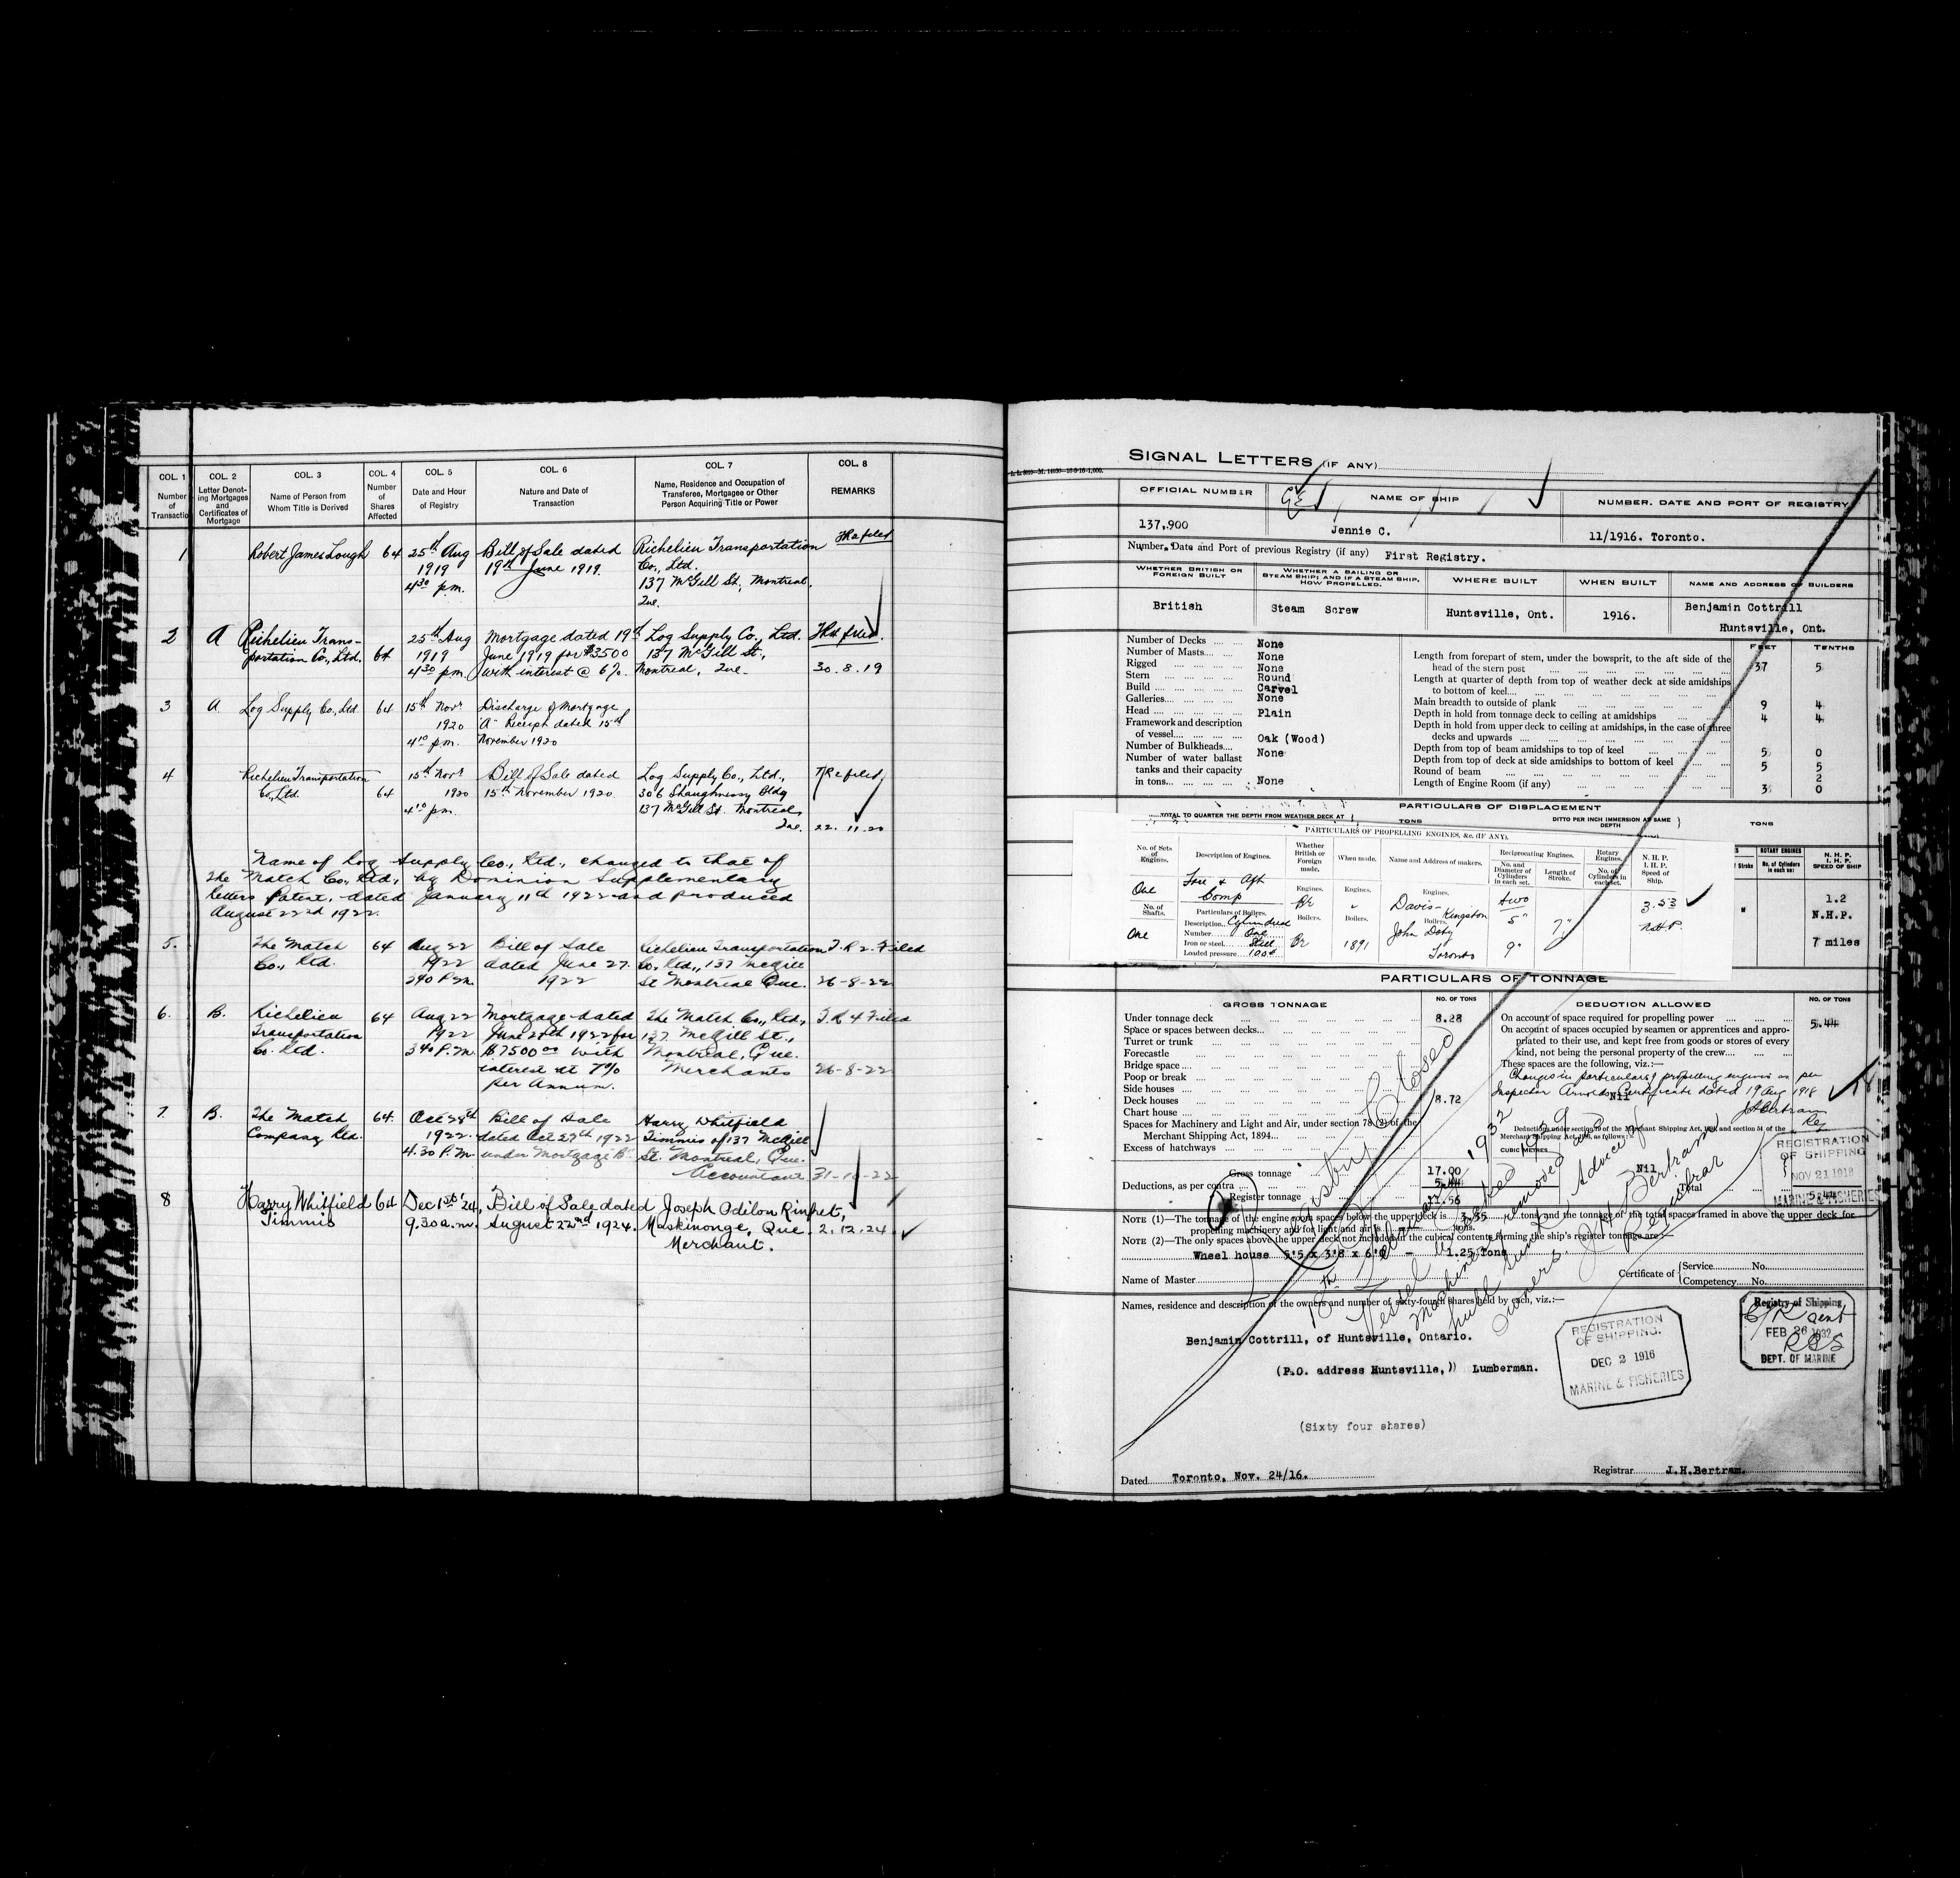 COL. 1 COL. 2 COL. 3 COL. 4 COL. 5 COL. 6 COL. 7 COL. 8
Number of Transaction
Letter Denoting Mortgages and Certificates of Mortgage
Name of Person from Whom Title is Derived
Number of Shares Affected
Date and Hour of Registry
Nature and Date of Transaction
Name, Residence and Occupation of Transferee, Mortgagee or Other Person Acquiring Title or Power
REMARKS
1 Robert James Lough 64 25th Aug Bill of Sale dated Richelieu Transportation filed
1919 19th June 1919. Co., Ltd.
4 30 p.m. 137 McGill St., Montreal,
Que.
2 A Richelieu Trans- 25th Aug Mortgage dated 19th Log Supply Co., Ltd. filed.
portation Co., Ltd. 64 1919 June 1919 for $3500 137 McGill St.,
4 30 p.m. with interest @ 6%. Montreal, Que. 30.8.19
3 A. Log Supply Co., Ltd. 64 15th Novr Discharge of Mortgage
1920 "A" Receipt dated 15th
4 10 p.m. November 1920
4 Richelieu Transportation 15th Novr Bill of Sale dated Log Supply Co., Ltd., filed
Co., Ltd. 64 1920 15th November 1920. 306 Shaughnessy Bldg
4 10 p.m. 137 McGill St. Montreal,
Que. 22.11.20
Name of Log Supply Co., Ltd., changed to that of
The Match Co., Ltd., by Dominion Supplementary
Letters Patent, dated January 11th 1922 and produced
August 22nd 1922.
5. The Match 64 Aug 22 Bill of Sale Richelieu Transportation T.R 2. Filed
Co., Ltd. 1922 dated June 27. Co., Ltd., 137 McGill
3 40 P.M. 1922 St Montreal Que. 26-8-22
6. B. Richelieu 64 Aug 22 Mortgage dated The Match Co., Ltd., T.R 4 Filed
Transportation 1922 June 27th 1922 for 137 McGill St.,
Co. Ltd. 3 40 P.M. $7500 00 with Montreal, Que.
interest at 7% Merchants 26-8-22
per Annum.
7. B. The Match 64. Oct 28th Bill of Sale Harry Whitfield
Company Ltd. 1922. dated Oct 27th 1922 Timmis of 137 McGill
4.30 P.M. under Mortgage B St. Montreal, Que.
Accountant 31-10-22
8 Harry Whitfield 64 Dec 1st '24, Bill of Sale dated Joseph Odilon Rinfret,
Timmis 9.30 a.m. August 22nd 1924. Maskinonge, Que. 2.12.24.
Merchant.
SIGNAL LETTERS (IF ANY)
OFFICIAL NUMBER NAME OF SHIP NUMBER, DATE AND PORT OF REGISTRY
137,900 Jennie C. 11/1916. Toronto.
Number, Date and Port of previous Registry (if any) First Registry.
WHETHER BRITISH OR FOREIGN BUILT
WHETHER A SAILING OR STEAM SHIP; AND IF A STEAM SHIP, HOW PROPELLED.
WHERE BUILT WHEN BUILT NAME AND ADDRESS OF BUILDERS
British Steam Screw Huntsville, Ont. 1916. Benjamin Cottrill
Huntsville, Ont.
Number of Decks None
Number of Masts None
Rigged None
Stern Round
Build Carvel
Galleries None
Head Plain
Framework and description of vessel Oak (Wood)
Number of Bulkheads None
Number of water ballast tanks and their capacity in tons None
FEET TENTHS
Length from forepart of stem, under the bowsprit, to the aft side of the head of the stern post 37 5
Length at quarter of depth from top of weather deck at side amidships to bottom of keel
Main breadth to outside of plank 9 4
Depth in hold from tonnage deck to ceiling at amidships 4 4
Depth in hold from upper deck to ceiling at amidships, in the case of three decks and upwards
Depth from top of beam amidships to top of keel 5 0
Depth from top of deck at side amidships to bottom of keel 5 5
Round of beam 2
Length of Engine Room (if any) 3 0
PARTICULARS OF DISPLACEMENT
TOTAL TO QUARTER THE DEPTH FROM WEATHER DECK AT TONS DITTO PER INCH IMMERSION AT SAME DEPTH TONS
PARTICULARS OF PROPELLING ENGINES, &c. (IF ANY).
No. of Sets of Engines. Description of Engines. Whether British or Foreign made. When made. Name and Address of makers. Reciprocating Engines. Rotary Engines. N. H. P. I. H. P. Speed of Ship.
No. and Diameter of Cylinders in each set. Length of Stroke. No. of Cylinders in each set.
One Fore & Aft Comp Engines. Br Engines. Engines. Davis- Kingston two 5" 7" 3.53
No. of Shafts. Particulars of Boilers. Boilers. Boilers. Boilers. N.H.P.
One Description Cylindrical
Number One
Iron or steel Steel Br 1891 John Doty Toronto 9"
Loaded pressure
ROTARY ENGINES
No. of Cylinders in each set
N. H. P. I. H. P. SPEED OF SHIP
1.2
N.H.P.
7 miles
PARTICULARS OF TONNAGE
GROSS TONNAGE NO. OF TONS DEDUCTION ALLOWED NO. OF TONS
Under tonnage deck 8.28
Space or spaces between decks
Turret or trunk
Forecastle
Bridge space
Poop or break
Side houses
Deck houses 8.72
Chart house
Spaces for Machinery and Light and Air, under section 78 (2) of the Merchant Shipping Act, 1894
Excess of hatchways
Gross tonnage 17.00
Deductions, as per contra 5.44
Register tonnage 11.56
On account of space required for propelling power 5.44
On account of spaces occupied by seamen or apprentices and appropriated to their use, and kept free from goods or stores of every kind, not being the personal property of the crew
These spaces are the following, viz.:—
Nil
Changes in particulars of propelling engines as per
Inspector Arnolds Certificate dated 19 Aug 1918
JHBertram
Reg
Deductions under section 79 of the Merchant Shipping Act, 1894, and section 54 of the Merchant Shipping Act, 1906, as follows:—
CUBIC METRES
Nil
Total 5.44
REGISTRATION
OF SHIPPING
NOV 21 1918
MARINE & FISHERIES
NOTE (1)—The tonnage of the engine room spaces below the upper deck is 3.35 tons, and the tonnage of the total spaces framed in above the upper deck for propelling machinery and for light and air is tons.
NOTE (2)—The only spaces above the upper deck not included in the cubical contents forming the ship's register tonnage are:—
Wheel house 6'5 x 3'8 x 6'0 - 1.25 Tons
Name of Master Certificate of Service No.
Competency No.
Names, residence and description of the owners and number of sixty-fourth shares held by each, viz.:—
Benjamin Cottrill, of Huntsville, Ontario.
(P.O. address Huntsville,) Lumberman.
(Sixty four shares)
Registry Closed
18th February 1932
Vessel
Machinery removed and
hull sunk. Advice of
Owners. J.H. Bertram
Registrar
REGISTRATION
OF SHIPPING.
DEC 2 1916
MARINE & FISHERIES
Registry of Shipping
C/R sent
FEB 26 1932
DEPT. OF MARINE
Dated Toronto, Nov. 24/16. Registrar J.H.Bertram.